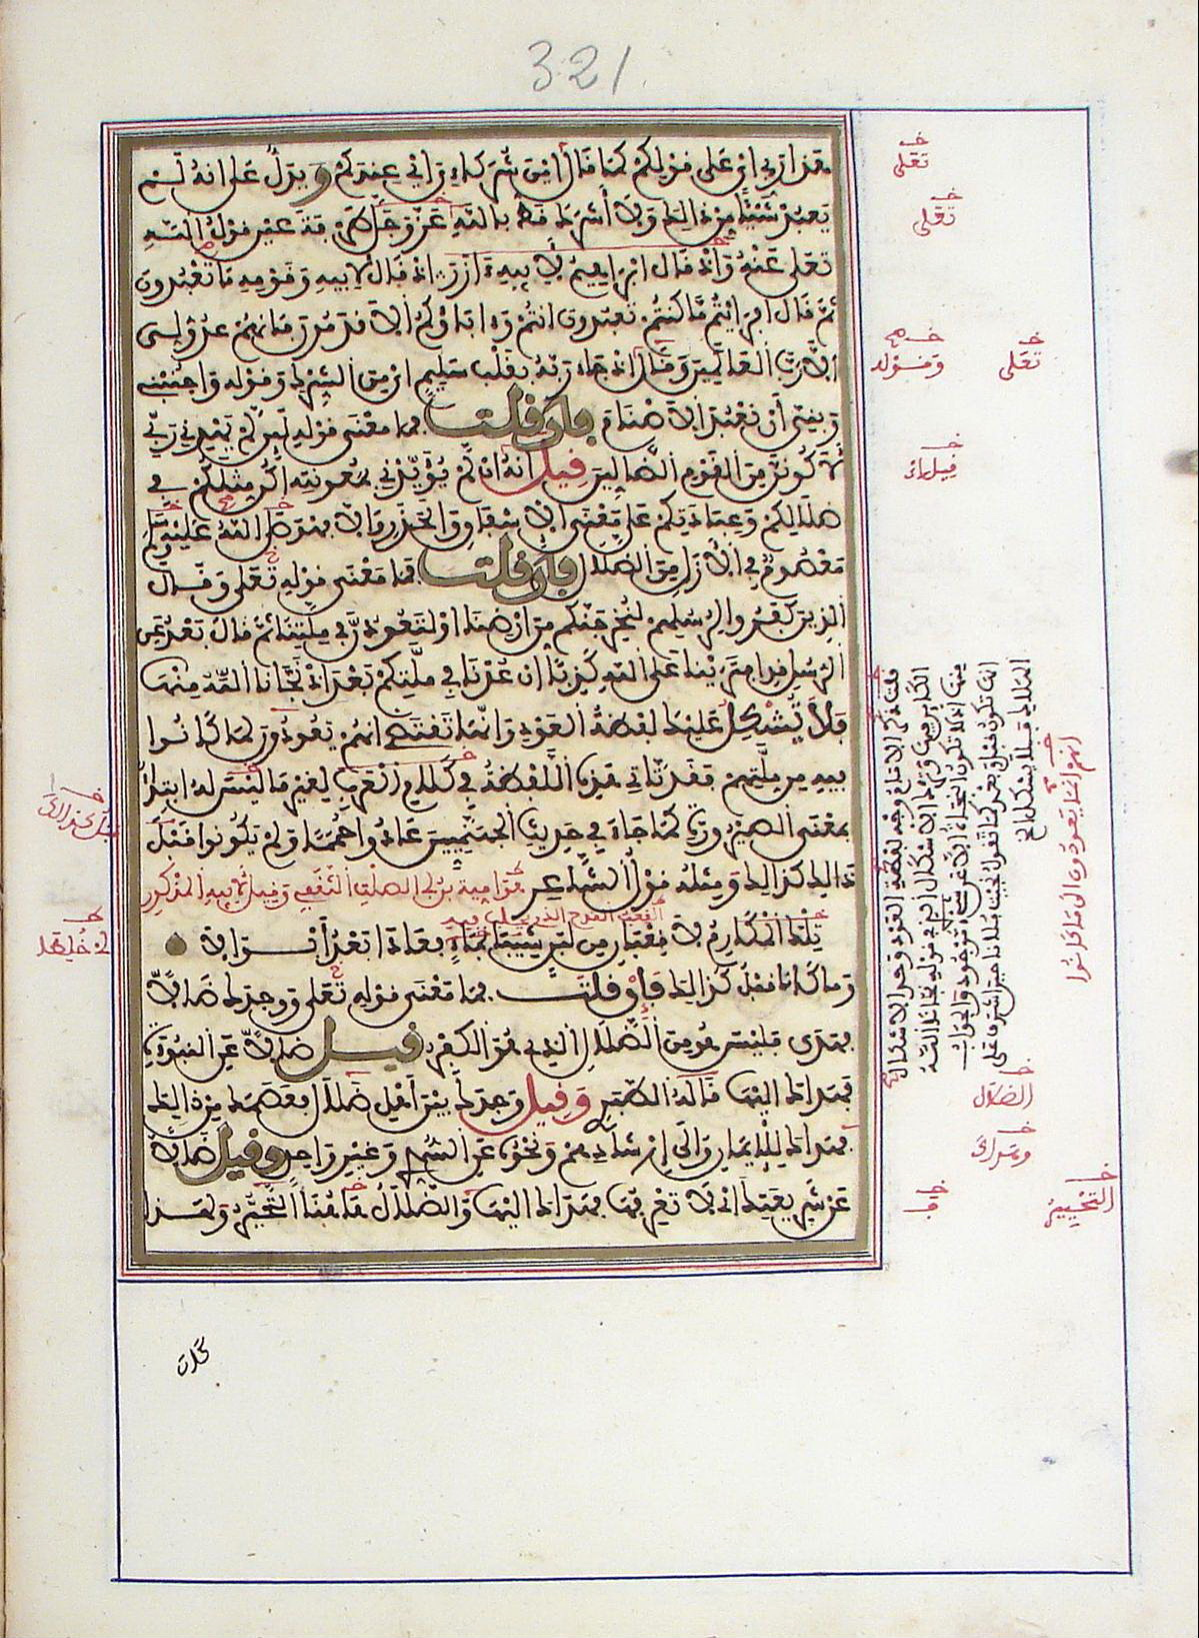 321
هذا ربي اي على قولكم كما قال اين شركاءي اي عندكم ويدل على انه لم
يعبد شيئا من ذلك ولا اشرك قط بالله عز وجل طرفة عين قول الله
تعلى عنه واذ قال ابرهيم لابيه ءازر اذ قال لابيه وقومه ما تعبدون
ثم قال افرايتم ما كنتم تعبدون انتم وءاباؤكم الاقدمون فانهم عدو لي
الا رب العلمين وقال اذ جاء ربه بقلب سليم اي من الشرك وقوله واجنبني
وبني ان نعبد الاصنام فان قلت فما معنى قوله لين لم يهدني ربي
لاكونن من القوم الضالين قيل انه ان لم يؤيدني بمعونته اكن مثلكم في
ضلالتكم وعبادتكم على معنى الاشفاق والحذر والا فهو صلى الله عليه وسلم
معصوم في الازل من الضلال فان قلت فما معنى قوله تعلى وقال
الذين كفروا لرسلهم لنخرجنكم من ارضنا او لتعودن في ملتنا ثم قال بعد عن
الرسل قد افترينا على الله كذبا ان عدنا في ملتكم بعد اذ نجانا الله منها
فلا يشكل عليك لفظة العود وانها تقتضي انهم يعودون لما كانوا
فيه من ملتهم فقد تاتي هذه اللفظة في كلام العرب لغير ما ليس له ابتداء
بمعنى الصيرورة كما جاء في حديث الجهنميين عادوا حمما ولم يكونوا قبل
ذالك كذالك ومثله قول الشاعر هو امية بن ابي الصلت الثقفي وقيل لابيه المذكور
تلك المكارم لا قعبان من لبن شيبا بماء فعادا بعد ابوالا
وما كانا قبل كذالك فان قلت فما معنى قوله تعلى ووجدك ضالا
فهدى فليس هو من الضلال الذي هو الكفر قيل ضالا عن النبوة
فهداك اليها قاله الطبري وقيل وجدك بين اهل الضلال فعصمك من ذالك
فهداك للايمان والى ارشادهم ونحوه عن السدي وغير واحد وقيل ضالا
عن شريعتك اي لا تعرفها فهداك اليها والضلال هاهنا التحير ولهذا
كان
تعلى
تعلى
وقوله
تعلى
الضلال
التحير
انهم انما يعودون الى ما كانوا